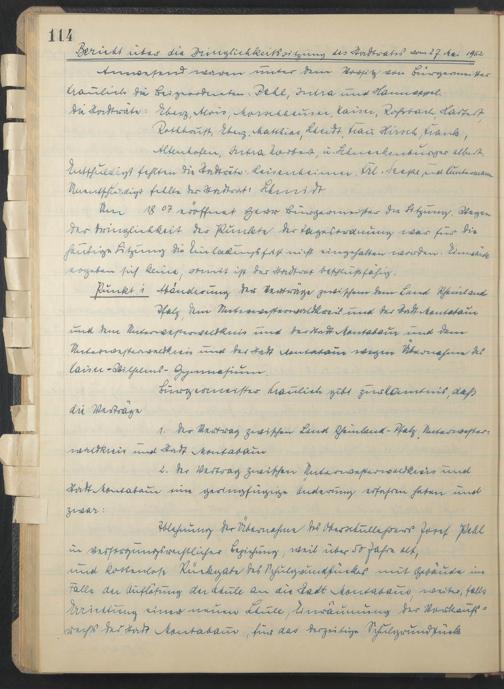 114
Bericht über die Dringlichkeitssitzung des Stadtrates vom 27. Mai 1952
Anwesend waren unter dem Vorsitz von Bürgermeister
Kraulich die Beigeordneten: Pehl, und Hannappel.
die Stadträte: Eberz, Alois, Kaiser,
Rothkrutt, Eberz, Mathias, Frau Hirsch, Frank,
Altenhofen, u.
Entschuldigt fehlten die Stadträte: Leisenheimer, Frl. und
Unentschuldigt fehlte der Stadtrat: Schmidt
Um 18 07 eröffnet Herr Bürgermeister die Sitzung. Wegen
der Dringlichkeit der Punkte der Tagesordnung war für die
heutige Sitzung die Einladungsfrist nicht eingehalten worden. Einwände
ergaben sich keine, somit ist der Stadtrat beschlußfähig.
Punkt 1 Abänderung der Verträge zwischen dem Land Rheinland
Pfalz, dem Unterwesterwaldkreis und der Stadt Montabaur
und dem Unterwesterwaldkreis und der Stadt Montabaur und dem
Unterwesterwaldkreis und der Stadt Montabaur wegen Übernahme des
Kaiser-Wilhelms-Gymnasium.
Bürgermeister Kraulich gibt zur Kenntnis, daß
die Verträge
1. Der Vertrag zwischen Land Rheinland-Pfalz, Unterwester-
waldkreis und Stadt Montabaur
2. der Vertrag zwischen Unterwesterwaldkreis und
Stadt Montabaur eine geringfügige Änderung erfahren haben und
zwar:
Ablehnung der Übernahme des Oberschullehrers Josef Pehl
in versorgungsrechtlicher Beziehung, weil über 50 Jahre alt,
und kostenlose Rückgabe des Schulgrundstückes mit Gebäude im
Falle der Auflösung der Schule an die Stadt Montabaur, weiter, falls
Errichtung einer neuen Schule, Einräumung des Vorkaufs-
rechts der Stadt Montabaur, für das derzeitige Schulgrundstück